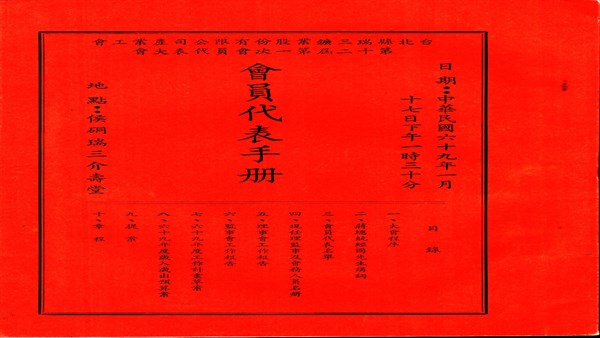 台北縣瑞三鑛業股份有限公司產業工會
第十二屆第一次會員代表大會
日期：中華民國六十九年一月
十七日下午一時三十分
會員代表手册
地點：侯硐瑞三介壽堂
目錄
一、大會程序
二、蔣總統經國先生
三、會員代表名單
四、現任理監事及會務人員名册
五、理事會工作報告
六、監事會工作報告
七、六十九年度工作計畫草案
八、六十九年度歲入歲出預算案
九、提案
十、章程